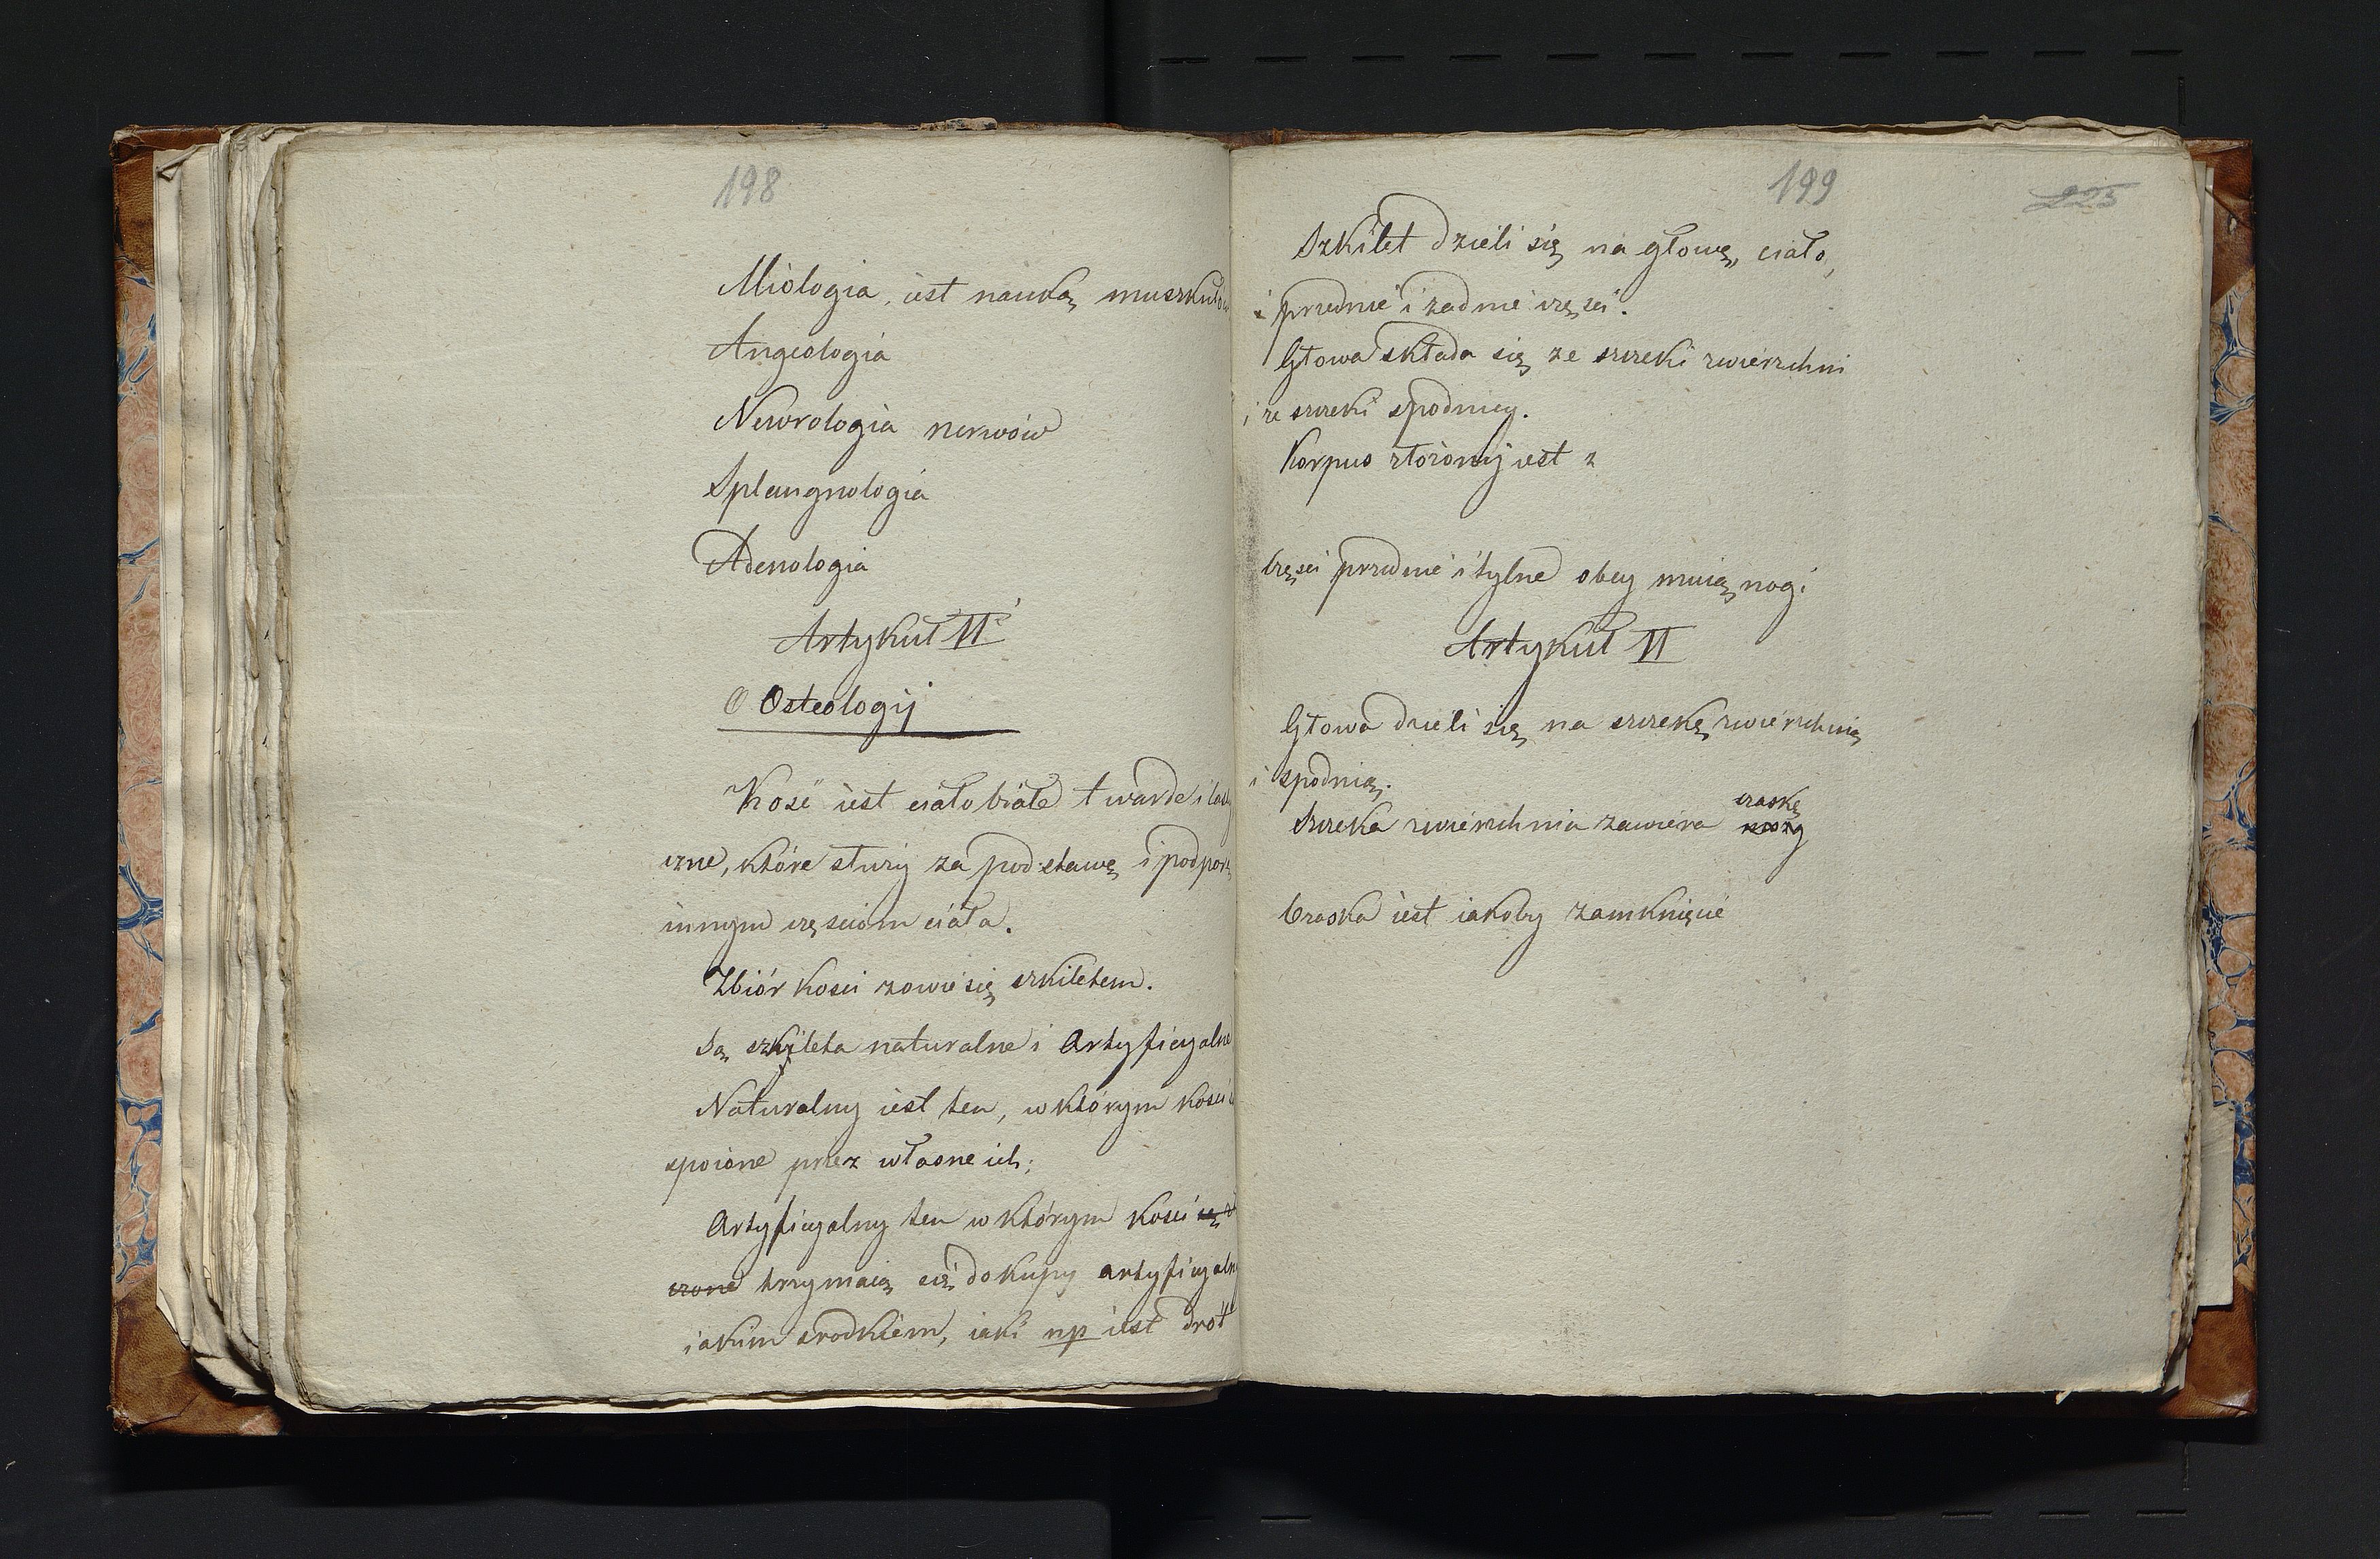 198
Miologia, iest nauką muszkułów
Angeologia
Newrologia nerwów
Splangnologia
Adenologia
Artykuł II
O Osteologij
Kość iest ciało białe twarde i
czne, które służy za podstawę i podporę
innym częsciom ciała.
Zbiór kosci zowie się szkiletem.
Są szkileta naturalne i Artyficyalne
Naturalny iest ten, w którym kości
spoione przez własne ich;
Artyficyalny ten w którym kosci są
czone trzymaią się do kupy artyficyalny
iakim srodkiem, iaki np iest drót
199
225
Szkilet dzieli się na głowę, ciało,
i przednie i zadnie częsci.
Głowa składa się ze szczeki zwierzchni
i ze szczeki spodniey.
Korpus złożony iest z
Częsci przednie i tylne obeymuią nogi
Artykuł II
Głowa dzieli się na szczekę zwierzchnią
i spodnią.
czaskę
Szczeka zwierzchnia zawiera mozg
Czaska iest iakoby zamknięcie